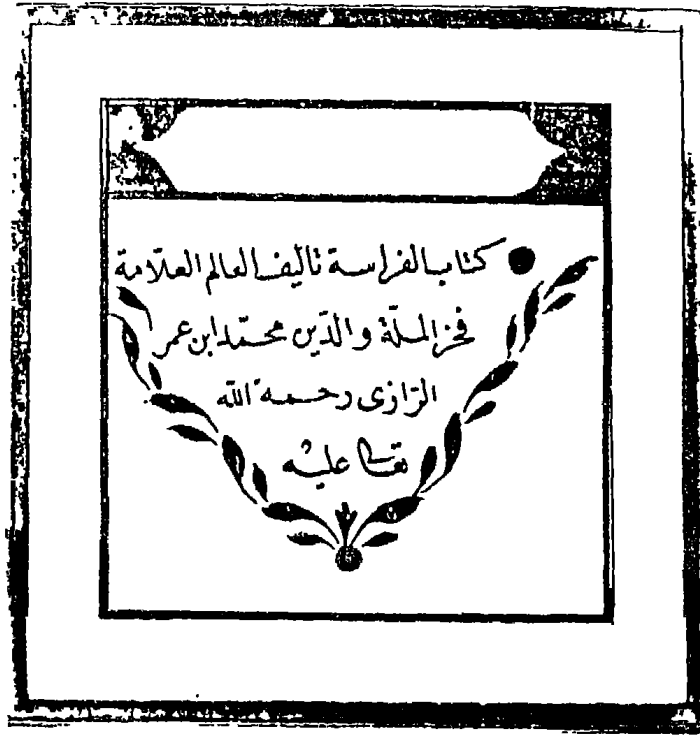 كتاب الفراسة تأليف العالم العلّامة
فخر الملّة والدّين محمّد ابن عمر
الرّازى رحمة الله
تعالى عليه